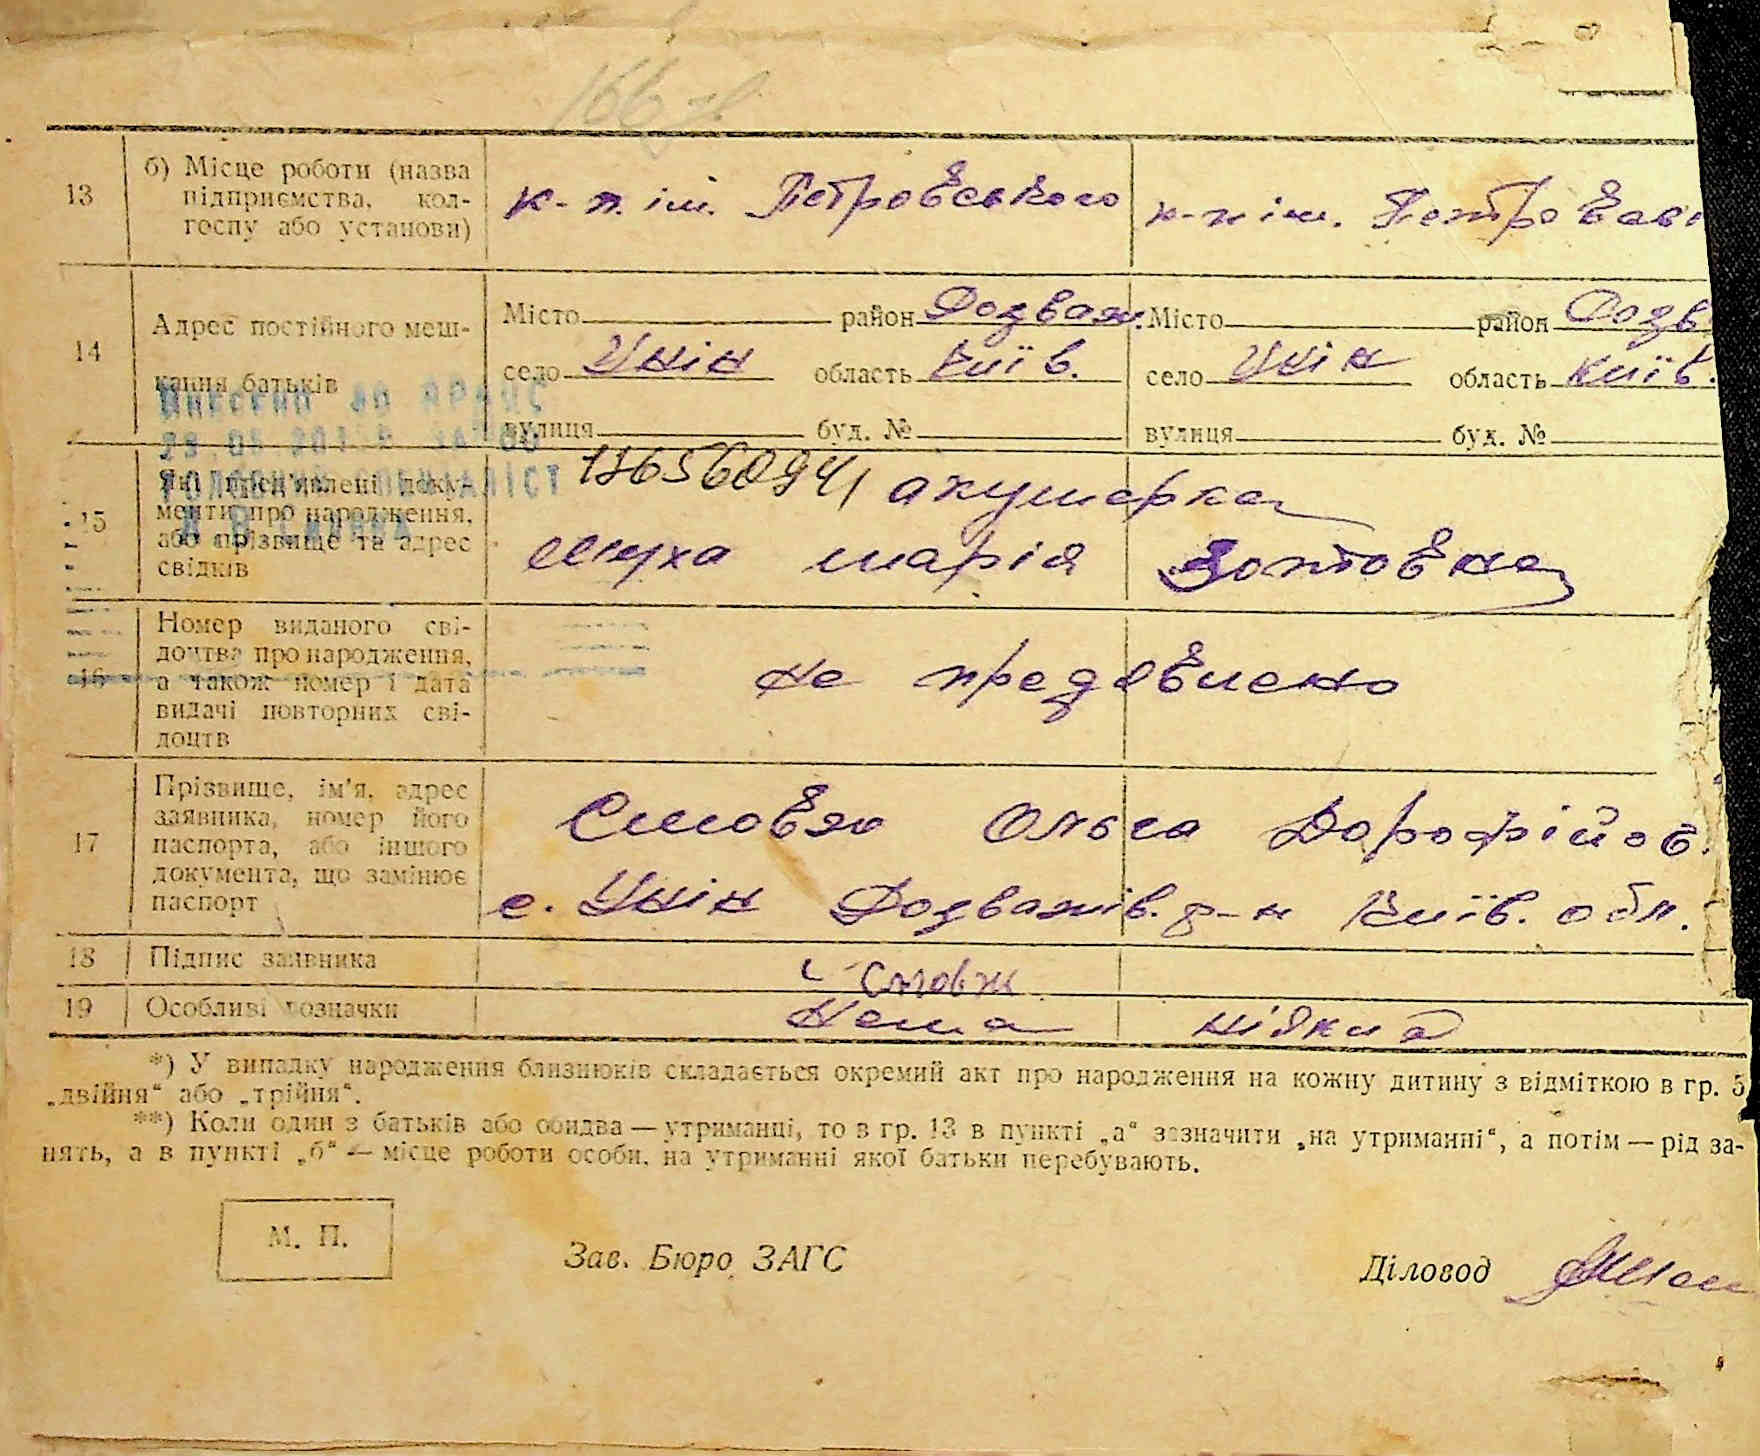 166
13
б) Місце роботи (назва
підприємства, кол-
госпу або установи)
к-п. ім. Петровського
к-п ім. Петровсь
14
Адрес постійного меш-
кання батьків
Місто район Розваж.
село Унін область Київ.
вулиця буд. №
Місто район Розв
село Унін область Київ.
вулиця буд. №
Внесено до ДРАЦС
15
Які пред'явлені доку-
менти про народження,
або прізвище та адрес
свідків
головний спеціаліст
акушерка
Муха Марія Зотовна
16
Номер виданого сві-
доцтва про народження,
а також номер і дата
видачі повторних сві-
доцтв
не предʼявлено
17
Прізвище, ім'я, адрес
заявника, номер його
паспорта, або іншого
документа, що замінює
паспорт
Смовж Ольга Дорофійов.
с. Унін Розважів. р-н Київ. обл.
18
Підпис заявника
Смовж
19
Особливі дозначки
Нема ніяких
*) У випадку народження близнюків складається окремий акт про народження на кожну дитину з відміткою в гр. 5
„двійня“ або „трійня“.
**) Коли один з батьків або обидва — утриманці, то в гр. 13 в пункті „а“ зазначити „на утриманні“, а потім — рід за-
нять, а в пункті „б“ — місце роботи особи, на утриманні якої батьки перебувають.
М. П.
Зав. Бюро ЗАГС
Діловод